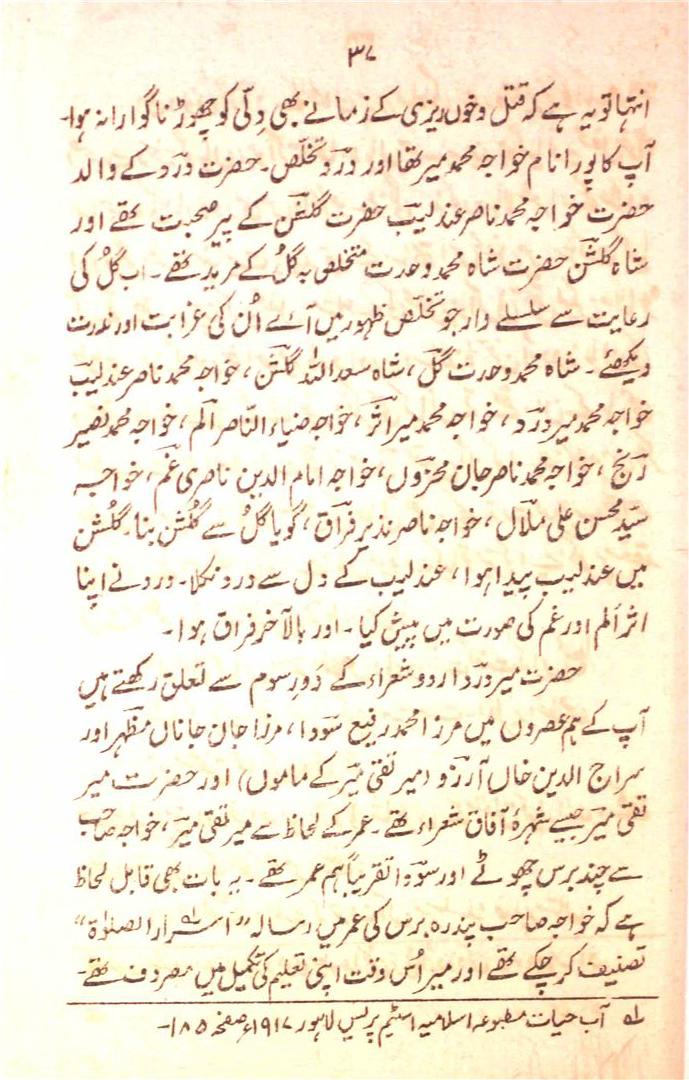 ۳۷
انتہا تو یہ ہے کہ قتل و خوں ریزی کے زمانے بھی دِلّی کو چھوڑنا گوارا نہ ہوا۔
آپ کا پورا نام خواجہ محمد میر تھا اور دردؔ تخلّص۔ حضرت دردؔ کے والد
حضرت خواجہ محمد ناصر عندلیبؔ حضرت گلشنؔ کے پیرِ صحبت تھے اور
شاہ گلشنؔ حضرت شاہ محمد وحدت متخلص بہ گلُ کے مرید تھے۔ اب گلُ کی
رعایت سے سلسلے وار جو تخلّص ظہور میں آئے اُن کی غرابت اور ندرت
دیکھئے۔ شاہ محمد وحدت گلؔ، شاہ سعد اللہ گلشنؔ، خواجہ محمد ناصر عندلیبؔ
خواجہ محمد میر دردؔ، خواجہ محمد میر اثرؔ، خواجہ ضیاء النّاصر المؔ، خواجہ محمد نصیر
رنجؔ، خواجہ محمد ناصر جان محزوںؔ، خواجہ امام الدین ناصری غمؔ، خواجہ
سیّد محسن علی ملالؔ، خواجہ ناصر نذیر فراقؔ، گویا گلُ سے گلُشن بنا۔ گلُشن
میں عندلیب پیدا ہوا، عندلیب کے دل سے درد نکلا۔ درد نے اپنا
اثر اَلم اور غم کی صورت میں پیش کیا۔ اور بالآخر فراق ہوا۔
حضرت میر دردؔ اردو شعراء کے دَورِ سوم سے تعلق رکھتے ہیں
آپ کے ہم عصروں میں مرزا محمد رفیع سوداؔ، مرزا جان جاناں مظہرؔ اور
سراج الدین خاں آرزوؔ (میر تقی میرؔ کے ماموں) اور حضرت میر
تقی میرؔ جیسے شہرۂ آفاق شعراء تھے۔ عمر کے لحاظ سے میر تقی میرؔ، خواجہ صاحب
سے چند برس چھوٹے اور سوداؔ تقریباً ہم عمر تھے۔ یہ بات بھی قابل لحاظ
ہے کہ خواجہ صاحب پندرہ برس کی عمر میں رسالہ "اسرار الصلوٰۃ"؂۱
تصنیف کر چکے تھے اور میر اُس وقت اپنی تعلیم کی تکمیل میں مصروف تھے۔
؂۱ آب حیات مطبوعہ اسلامیہ اسٹیم پریس لاہور ۱۹۱۷ء صفحہ ۱۸۵۔